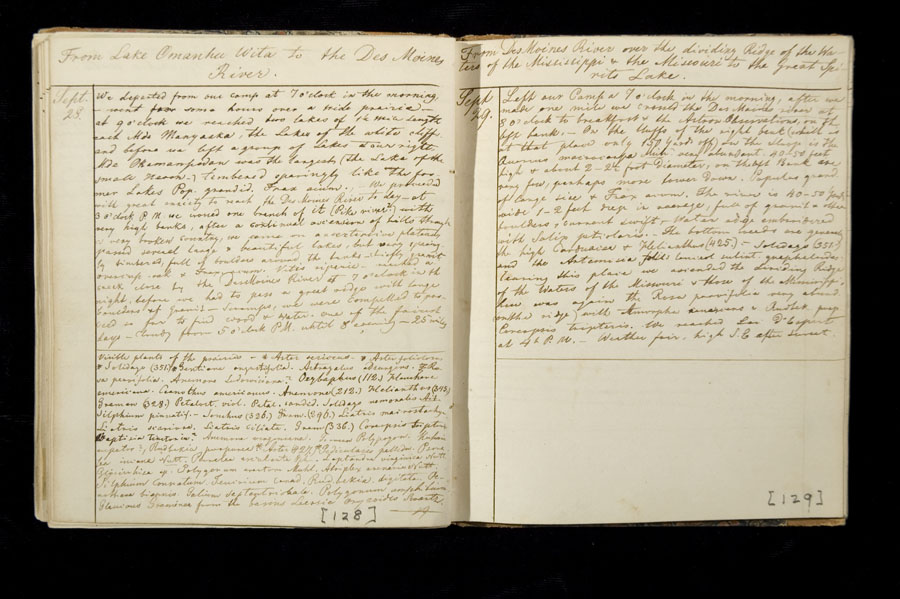 From Lake Omanhu Wita to the Des Moines
River.
Sept. 28.
We departed from our camp at 7 o'clock in the morning,
went for some hours over a wide prairie —
at 9 o'clock we reached two lakes of 1½ mile length
each Mde Manyaska, the Lakes of the white cliffs
and before us left a group of Lakes at our right
Mde Okamanpedan was the largest (the Lake of the
small Heron —) timbered sparingly like the for-
mer Lakes Pop. grandid. Frax acum. — We proceeded
with great anxiety to reach the Des Moines River to day — at
3 o'clock P.M. we crossed one branch of it (Pike river?) with
very high banks, after a continual of hills through
a very broken country, we came on a plateau
passed several large & beautiful lakes, but very sparing-
ly timbered, full of boulders around the banks chiefly granit
overcup-oak & Vites riparia. — reached a
creek close by the Des Moines River at 7 o'clock in the
night, before we had to pass a great ridge with large
boulders of granit — swamps, we were compelled to pro-
ceed so far to find wood & water. one of the fairest
days — cloudy from 5 o'clock P.M. until 8 evening — 25 miles
Visible plants of the prairie — Aster sericeus. Aster
& Solidago (351) & Gentiana angustifolia. Astragalus
sa parvifolia. Anemone Oxybaphus (112.)
americana. Ceanothus americanus. (212.) Helianthus (343)
Gramen (328.) Petalost. viol. Petal. candid. Solidago nemoralis
Silphium pinnatif. — Sonchus (326.) Gram. (296.) Liatris
Liatris scariosa. Liatris ciliata. Gram (336.) Coreopsis tript
Baptisia tinctoria? Anemone
Rudbekia purpurea Aster 427? Pedicularis pallida.
Nutt. Leptandra virginica Nutt.
Glycirrhiza sp. Polygonum erectum Muhl. Atriplex Nutt.
Silphium Connatum. Teucrium Canad. Rudbekia digitata.
biennis. Galium Septentrionale. Polygonum amphibium
Gramineae from the
[128]
From Des Moines River over the dividing Ridge of the Wa-
ters of the Mississippi & the Missouri to the Great Spi-
rits Lake.
Sept 29.
Left our Camp 7 o'clock in the morning, after we
made one mile we crossed the Des Moines
8 o'clock to breakfast & the Astron Observation, on the
left bank. — On the bluffs of the right bank (which is
at that place only 150 yards off) on the slope is the
Quercus macrocarpa Mich very abundant 40-50 feet
high & about 2-2½ foot Diameter, on the left Bank are
very few, perhaps more lower down. Populus grand.
of large size & Frax acum. The river is 40-50 yards
wide 1-2 feet deep in average, full of granit & other
boulders, current swift, Water edge embroidered
with Salix petiolaris. The bottom weeds are generally
the high & Helianthus (425.) — Solidago (351.)
and the Artemisia
leaving this place we ascended the dividing Ridge
of the Waters of the Missouri & those of the Mississippi,
here was again the Rosa parvifolia very abund.
on the ridge with Amorpha canescens & Rudbek. purp
Coreopsis tripteris. We reached Lac D'Esprit
at 4½ P.M. — Weather fair. high S.E. after sunset.
[129]